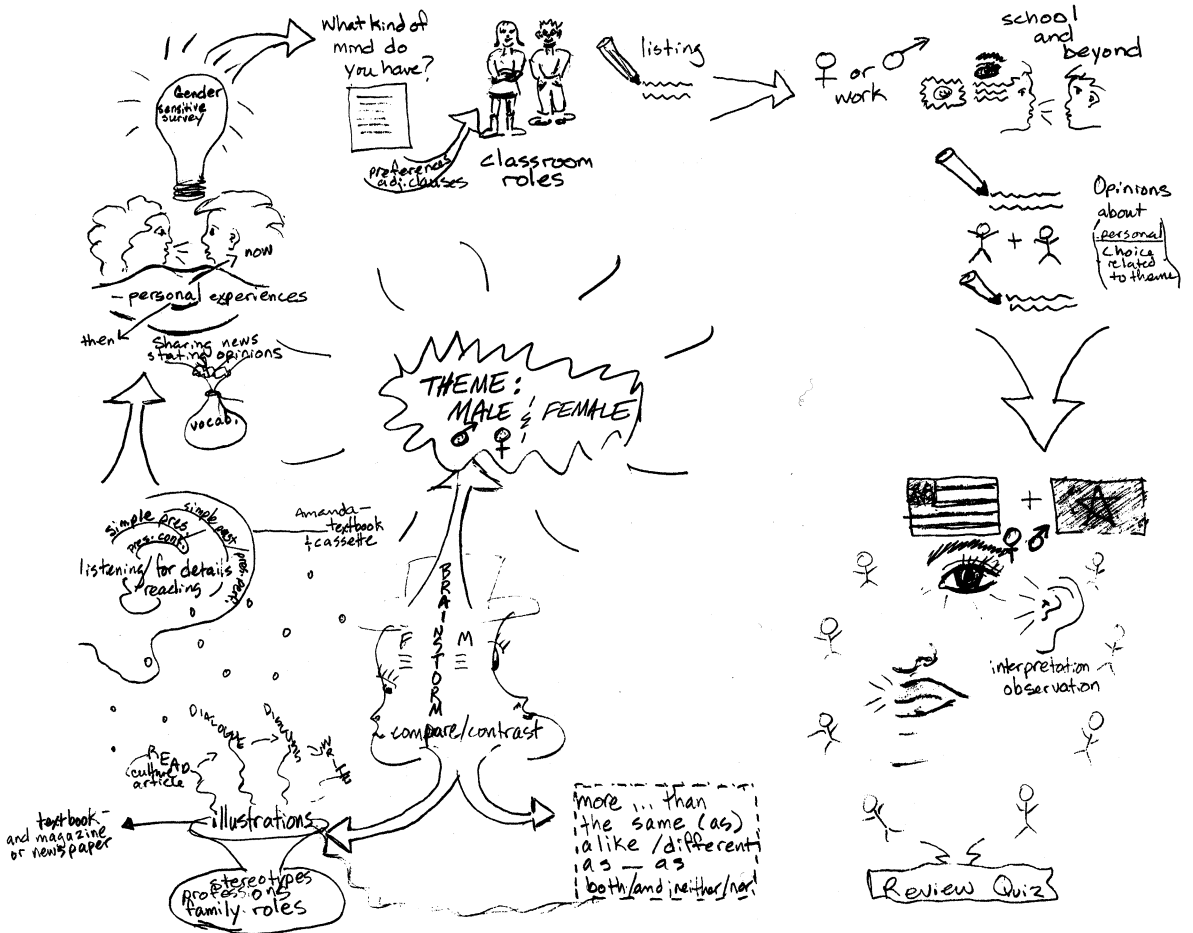 What kind of
mind do
you have?
Gender
sensitive
survey
preferences
adj. clauses
classroom
roles
listing
♀ or ♂
work
school
and
beyond
Opinions
about
personal
choice
related
to theme
now
- personal experiences
then
Sharing news
stating opinions
vocab.
THEME:
MALE & FEMALE
♂ ♀
simple pres.
simple past
pres. cont.
pres. perf.
listening/for details
reading
Amanda-
textbook
& cassette
BRAINSTORM
F M
compare/contrast
READ
culture
article
DIALOGUE
DISCUSS
WRITE
illustrations
textbook-
and magazine
or newspaper
stereotypes
professions
family roles
more ... than
the same (as)
alike /different
as — as
both/and neither/nor
+
♀ ♂
interpretation
observation
Review Quiz